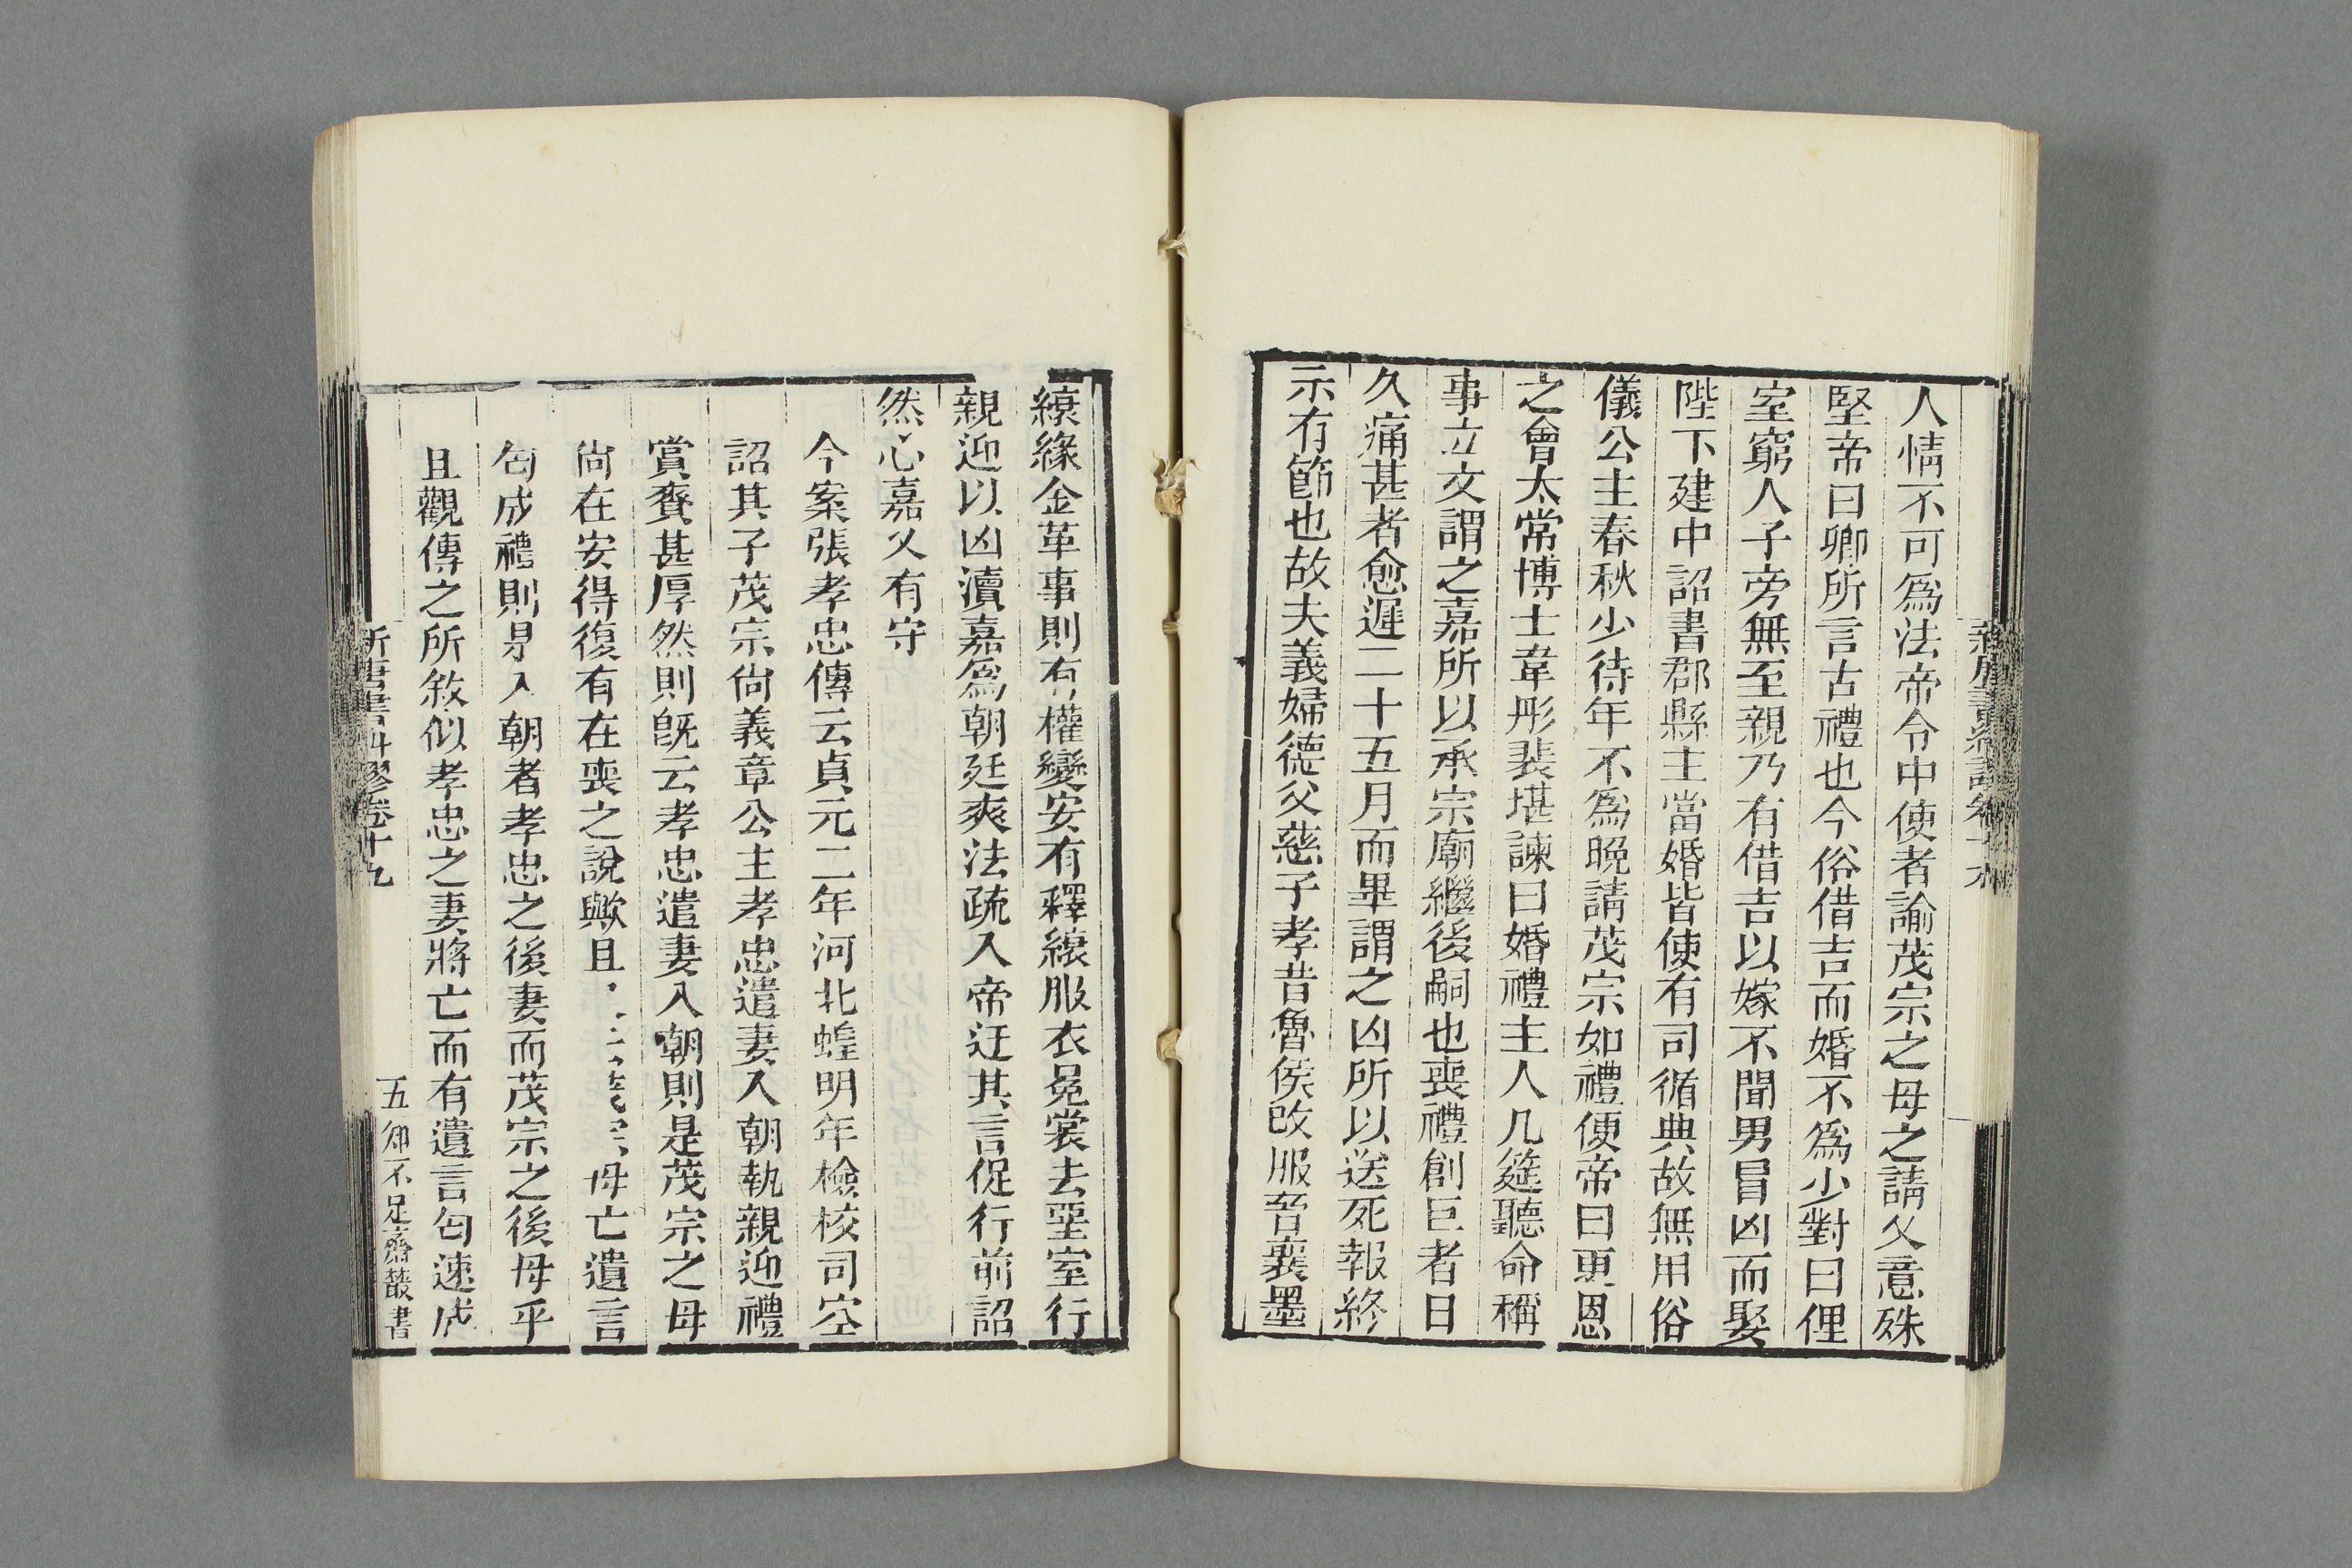 人情不可爲法帝令中使者諭茂宗之母之請乂意殊
堅帝曰卿所言古禮也今俗借吉而婚不爲少對曰俚
室窮人子旁無至親乃有借吉以嫁不聞男冒凶而娶
陛下建中詔書郡縣主當婚皆使有司循典故無用俗
儀公主春秋少待年不爲晚請茂宗如禮便帝曰更思
之會太常博士韋彤裴堪諫曰婚禮主人几筵聽命稱
事立文謂之嘉所以承宗廟繼後嗣也喪禮創巨者日
久痛甚者愈遲二十五月而畢謂之凶所以送死報終
示有節也故夫義婦德父慈子孝昔魯侯改服晉襄墨
縗緣金革事則有權變安有釋縗服衣冕裳去堊室行
親迎以凶瀆嘉爲朝廷爽法疏入帝迂其言促行前詔
然心嘉乂有守
今案張孝忠傳云貞元二年河北蝗明年檢校司空
詔其子茂宗尙義章公主孝忠遣妻入朝執親迎禮
賞賚甚厚然則旣云孝忠遣妻入朝則是茂宗之母
尙在安得復有在喪之說歟且茂宗母亡遺言
匄成禮則是入朝者孝忠之後妻而茂宗之後母乎
且觀傳之所敘似孝忠之妻將亡而有遺言匄速成
新唐書糾謬卷十九
五 知不足齋叢書